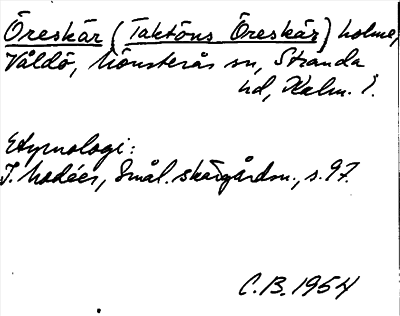 Öreskär (Taktöns Öreskär) holme,
Våldö, Mönsterås sn, Stranda
hd, Kalm. l.
Etymologi:
J. Modéer, Smål. skärgårdsn., s. 97.
C.B. 1954